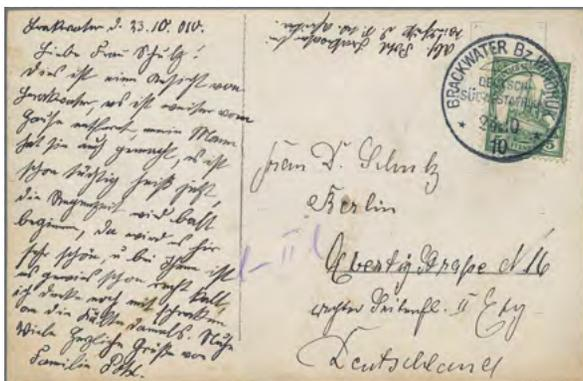 Brakwater d. 23.10.010.
Liebe Frau Schulz!
Dies ist eine Ansicht von
Brakwater, es ist weiter vom
Hause entfernt, mein Mann
hat sie auch gemacht, es ist
schon tüchtig heiß jetzt,
die Regenzeit wird bald
beginnen, da wird es hier
sehr schön, u bei Ihnen ist
es gewiss schon recht kalt,
ich denke noch mit Schrecken
an die Kälte damals.
Viele herzliche Grüße von
Familie
Abs.
BRACKWATER Bz. WINDHUK
DEUTSCH-
SÜDWESTAFRIKA
10
5
Frau D. Schulz
Berlin
Straße N 16
rechter Seitenfl. II
Deutschland